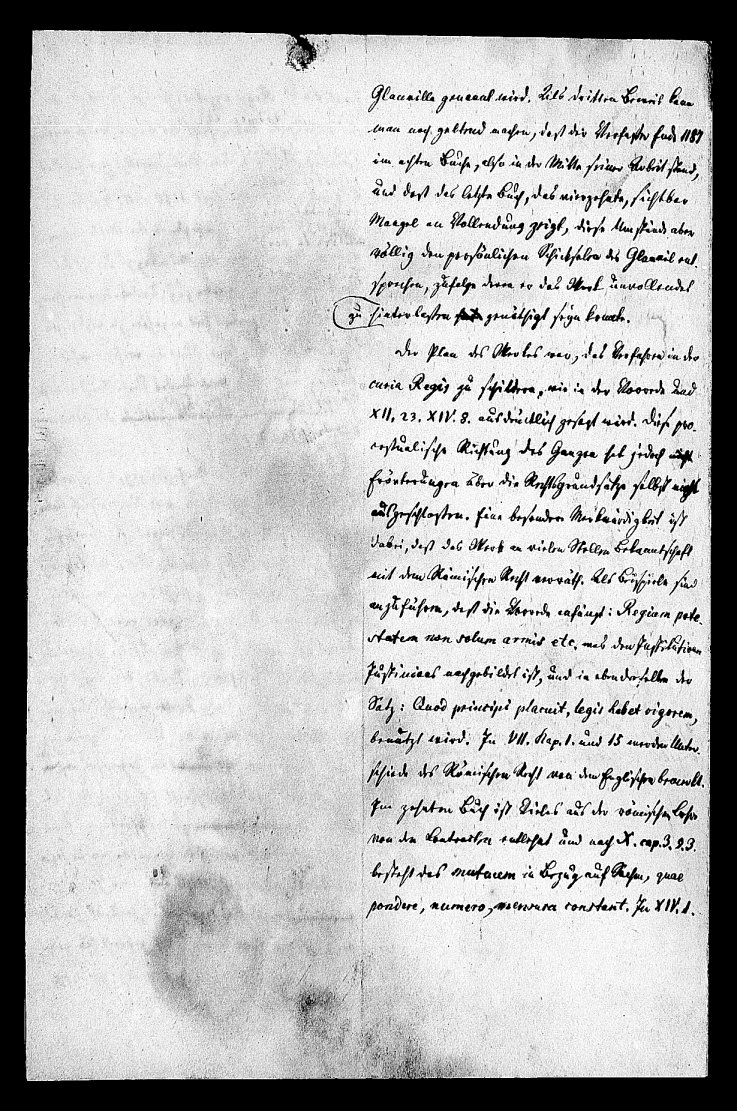 Glanville genannt wird. Als dritten Beweis kann
man noch geltend machen, daß der Verfasser Ende 1187
im achten Buche, also in der Mitte seiner Arbeit stand,
und daß das letzte Buch, das vierzehnte, sichtbar
Mangel an Vollendung zeigt, diese Umstände aber
völlig den persönlichen Schicksalen des Glanvil ent-
sprechen, zufolge deren er das Werk unvollendet
zu hinterlassen genöthigt seyn konnte.
Der Plan des Werkes war, das Verfahren in der
curia Regis zu schildern, wie in der Vorrede und
XII. 23. XIV. 8. ausdrücklich gesagt wird. Diese pro-
cessualische Richtung des Ganzen hat jedoch
Erörterungen über die Rechtsgrundsätze selbst nicht
ausgeschlossen. Eine besondere Merkwürdigkeit ist
dabei, daß das Werk an vielen Stellen Bekanntschaft
mit dem Römischen Recht verräth. Als Beispiele sind
anzuführen, daß die Vorrede anfängt: Regiam pote-
statem non solum armis etc. was den Institutionen
Justinians nachgebildet ist, und in ebenderselben der
Satz: Quod principi placuit, legis habet vigorem,
benutzt wird. In VII. Kap. 1. und 15 werden Unter-
schiede des Römischen Recht von dem Englischen bemerkt.
Im zehnten Buch ist Vieles aus der römischen Lehre
von den Contracten entlehnt und nach X. cap. 3. 2.3.
besteht das mutuum in Bezug auf Sachen, quae
pondere, numero, mensura constant. In XIV. 1.